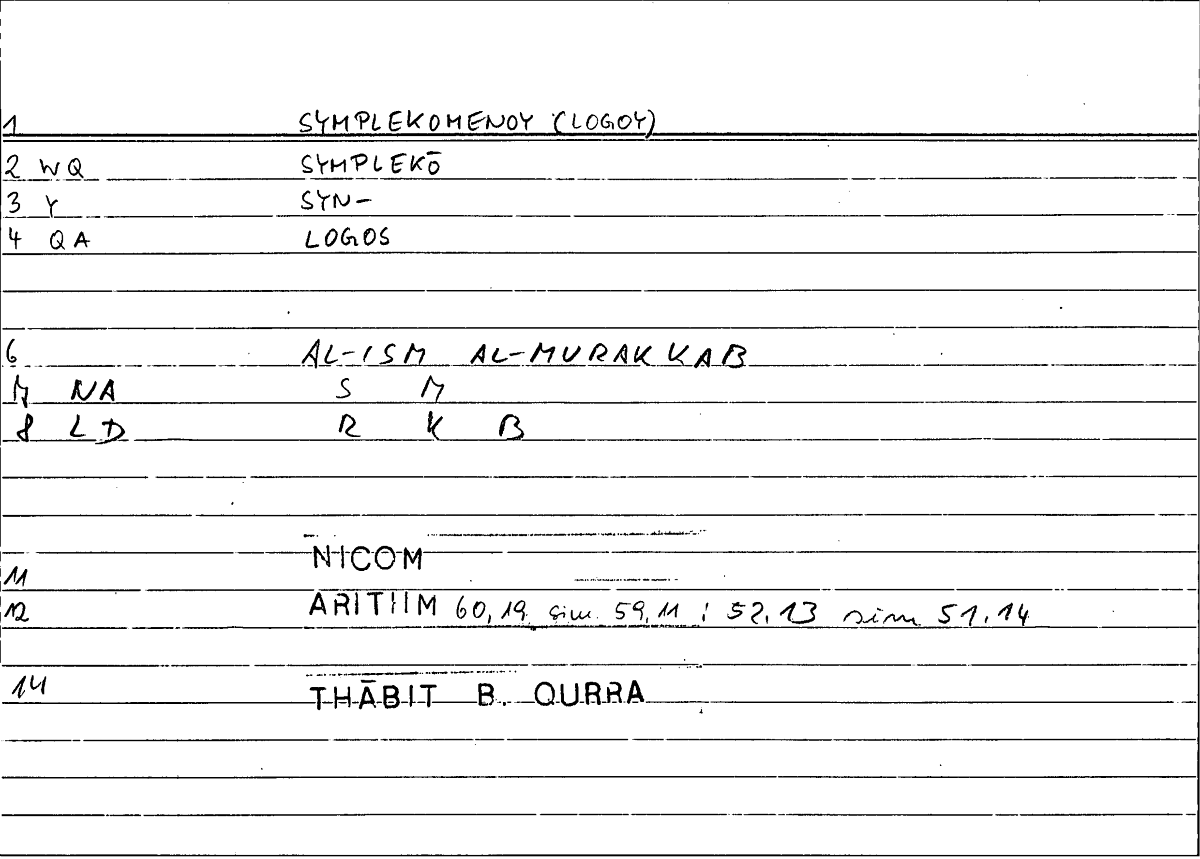 1 SYMPLEKOMENOY (LOGOY)
2 WQ SYMPLEKŌ
3 Y SYN-
4 QA LOGOS
6 AL-ISM AL-MURAKKAB
7 NA S M
8 LD R K B
11 NICOM
12 ARITHM 60,19 sim. 59,11 : 52,13 sim 51,14
14 THĀBIT B. QURRA